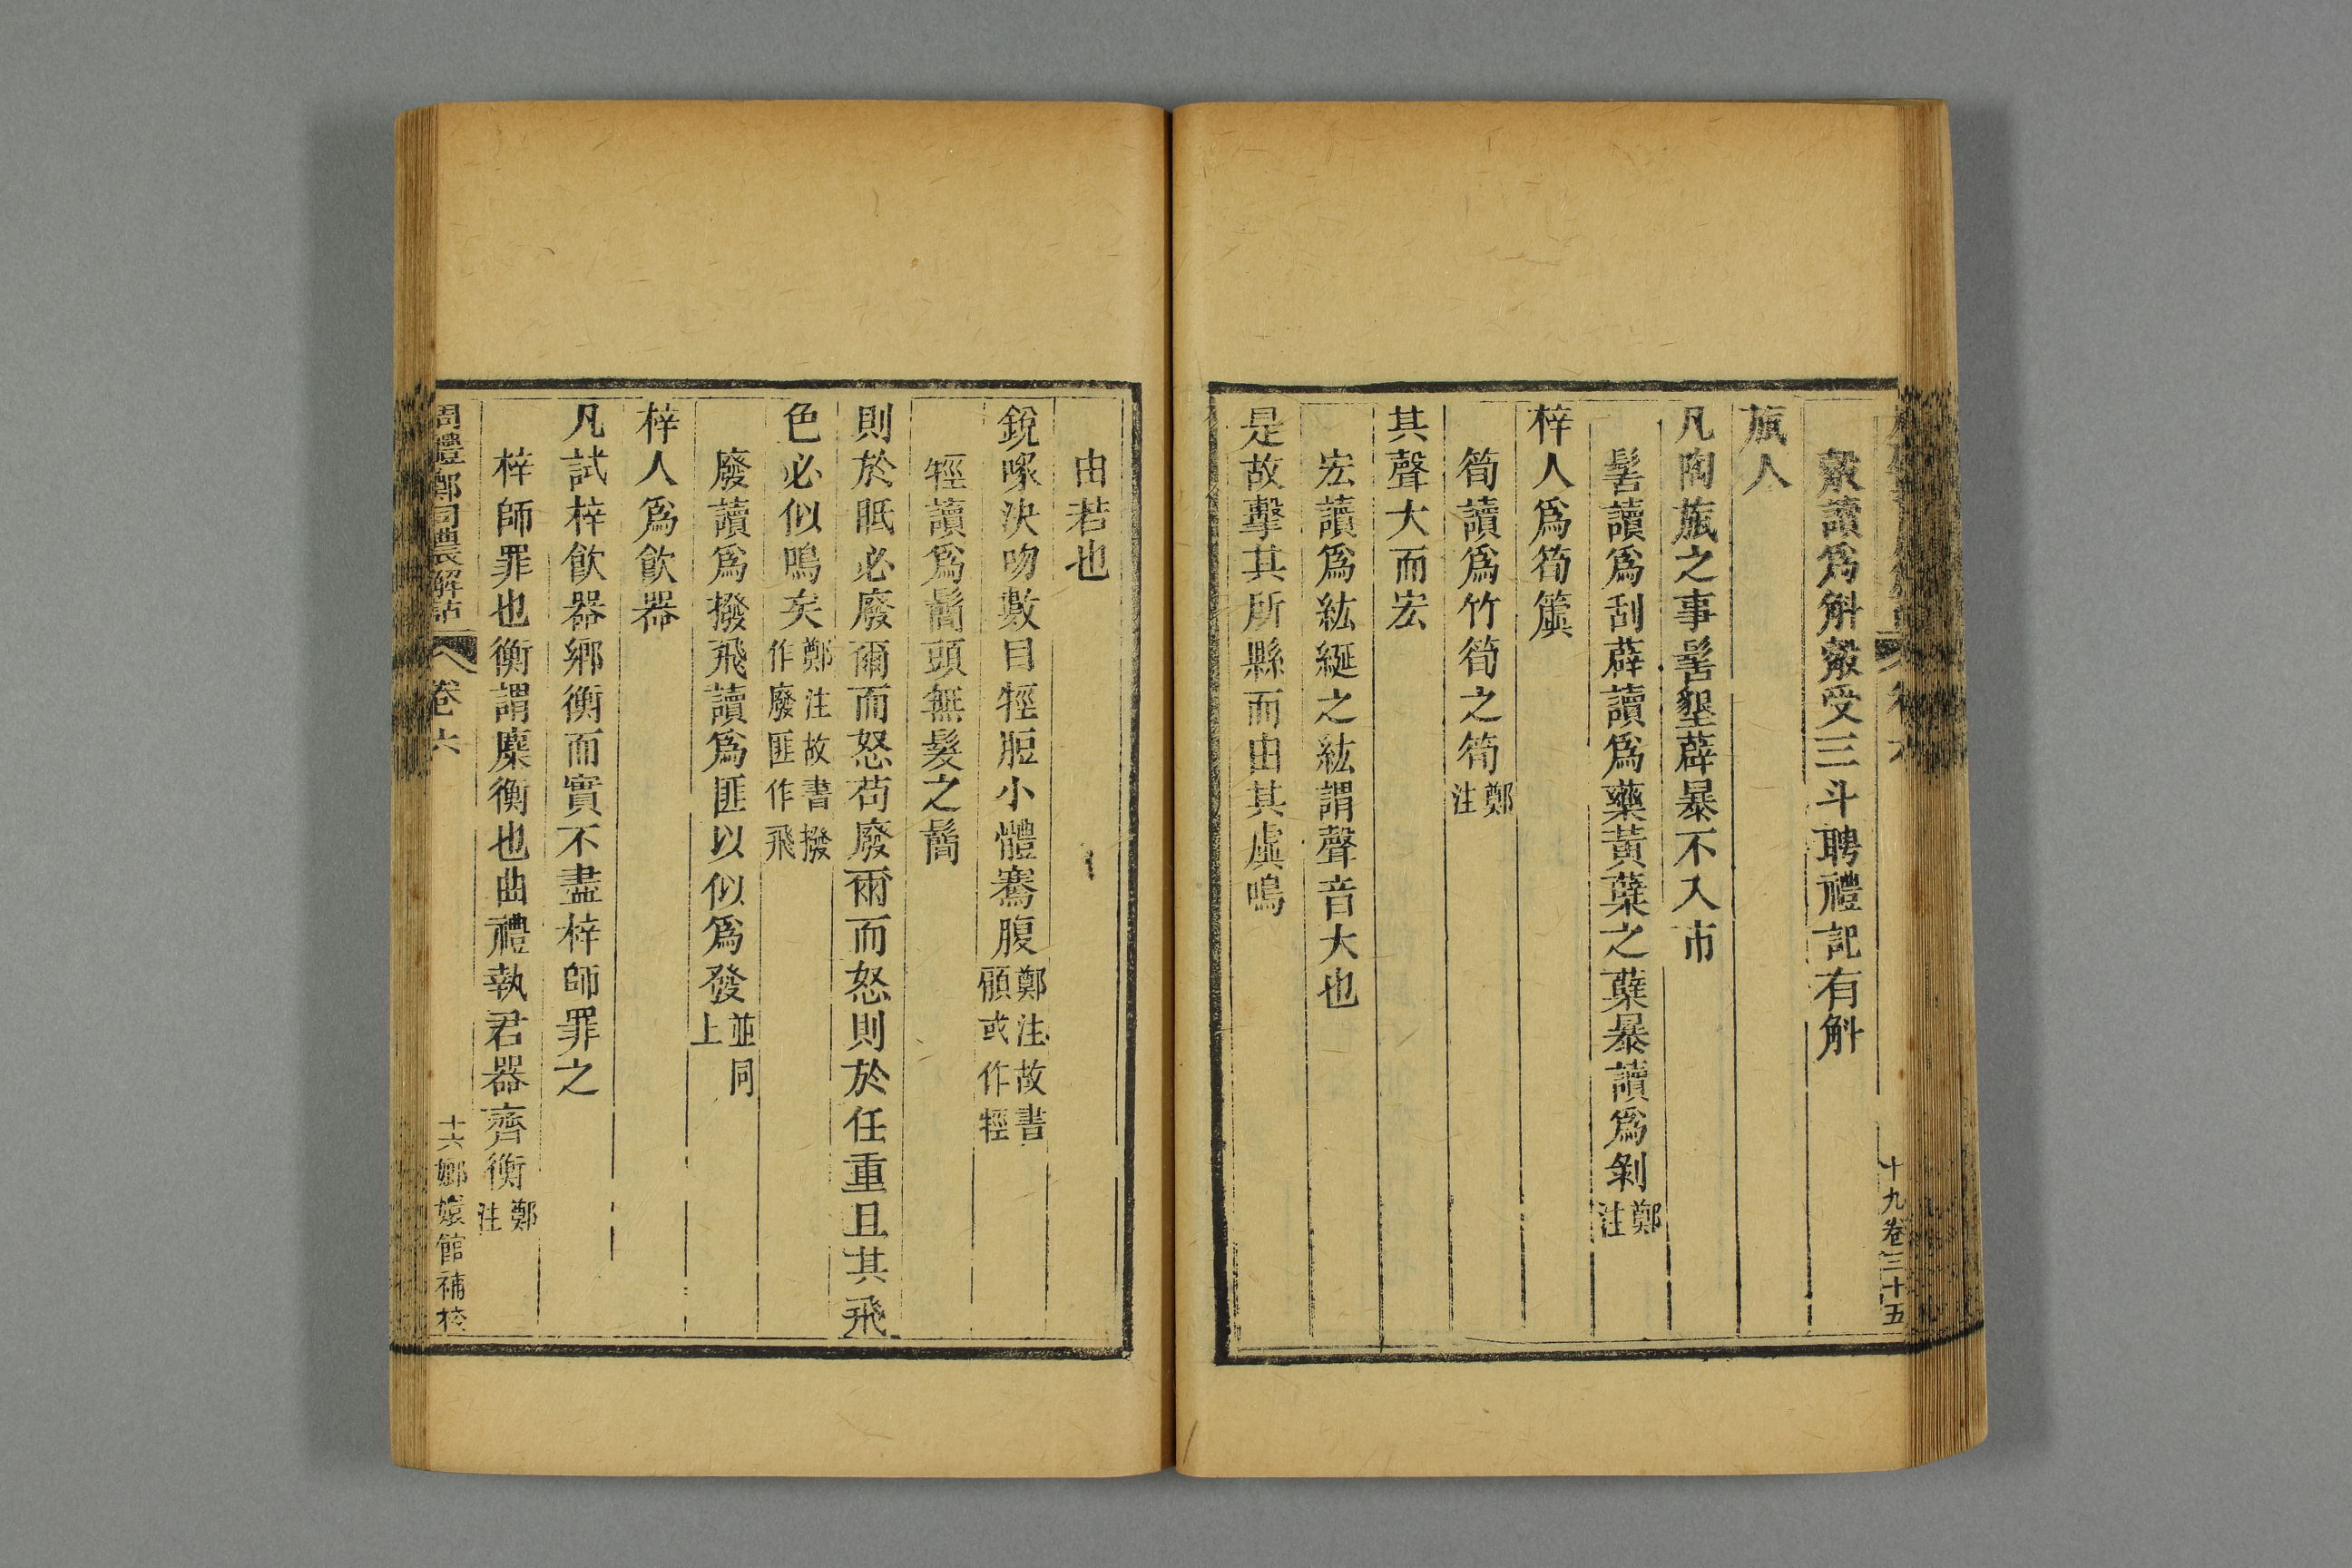 十九卷三十五
縠讀爲斛縠受三斗聘禮記有斛
瓬人
凡陶瓬之事髺墾薜暴不入市
髺讀爲刮薜讀爲藥黃蘗之蘗暴讀爲剝鄭注
梓人爲筍簴
筍讀爲竹筍之筍鄭注
其聲大而宏
宏讀爲紘綖之紘謂聲音大也
是故擊其所縣而由其虡鳴
由若也
銳喙決吻數目顅脰小體騫腹鄭注故書顅或作牼
牼讀爲鬜頭無髮之鬜
則於眂必廢爾而怒苟廢爾而怒則於任重且其飛
色必似鳴矣鄭注故書撥作廢匪作飛
廢讀爲撥飛讀爲匪以似爲發並同上
梓人爲飮器
凡試梓飮器鄉衡而實不盡梓師罪之
梓師罪也衡謂麋衡也曲禮執君器齊衡鄭注
周禮鄭司農解詁 卷六 十六 嫏嬛館補校